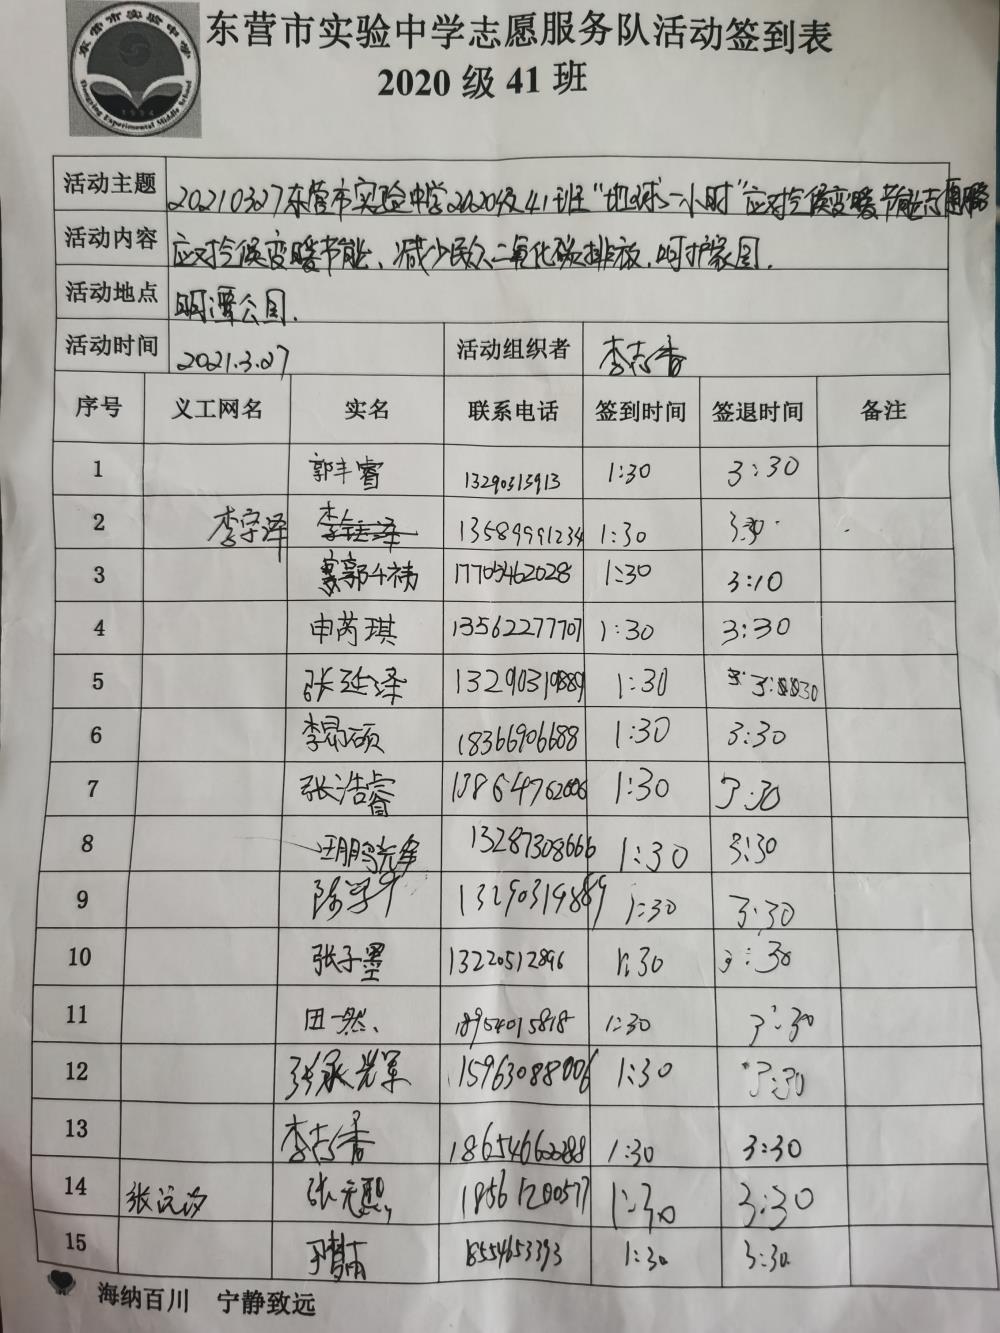 东营市实验中学
Dongying Experimental Middle School
1994
东营市实验中学志愿服务队活动签到表
2020 级 41 班
活动主题 20210327东营市实验中学2020级41班“地球一小时”应对气候变暖节能志愿服务
活动内容 应对气候变暖节能、减少民众二氧化碳排放,呵护家园.
活动地点 明潭公园.
活动时间 2021.3.27 活动组织者 李志香
序号 义工网名 实名 联系电话 签到时间 签退时间 备注
1 郭丰睿 13290315913 1:30 3:30
2 李宇泽 13589991234 1:30 3:30
3 郭千祎 17705462028 1:30 3:10
4 申芮琪 13562277707 1:30 3:30
5 张延泽 13290319889 1:30 3:30
6 李昂硕 18366906688 1:30 3:30
7 张浩睿 13864762006 1:30 3:30
8 汪鹏 13287308666 1:30 3:30
9 陈 13290319889 1:30 3:30
10 张子墨 13220512896 1:30 3:30
11 田一然、 18954015818 1:30 3:30
12 张承 15963088006 1:30 3:30
13 李志香 18654662288 1:30 3:30
14 张沅汐 张元熙 18561200577 1:30 3:30
15 18554653393 1:30 3:30
海纳百川 宁静致远